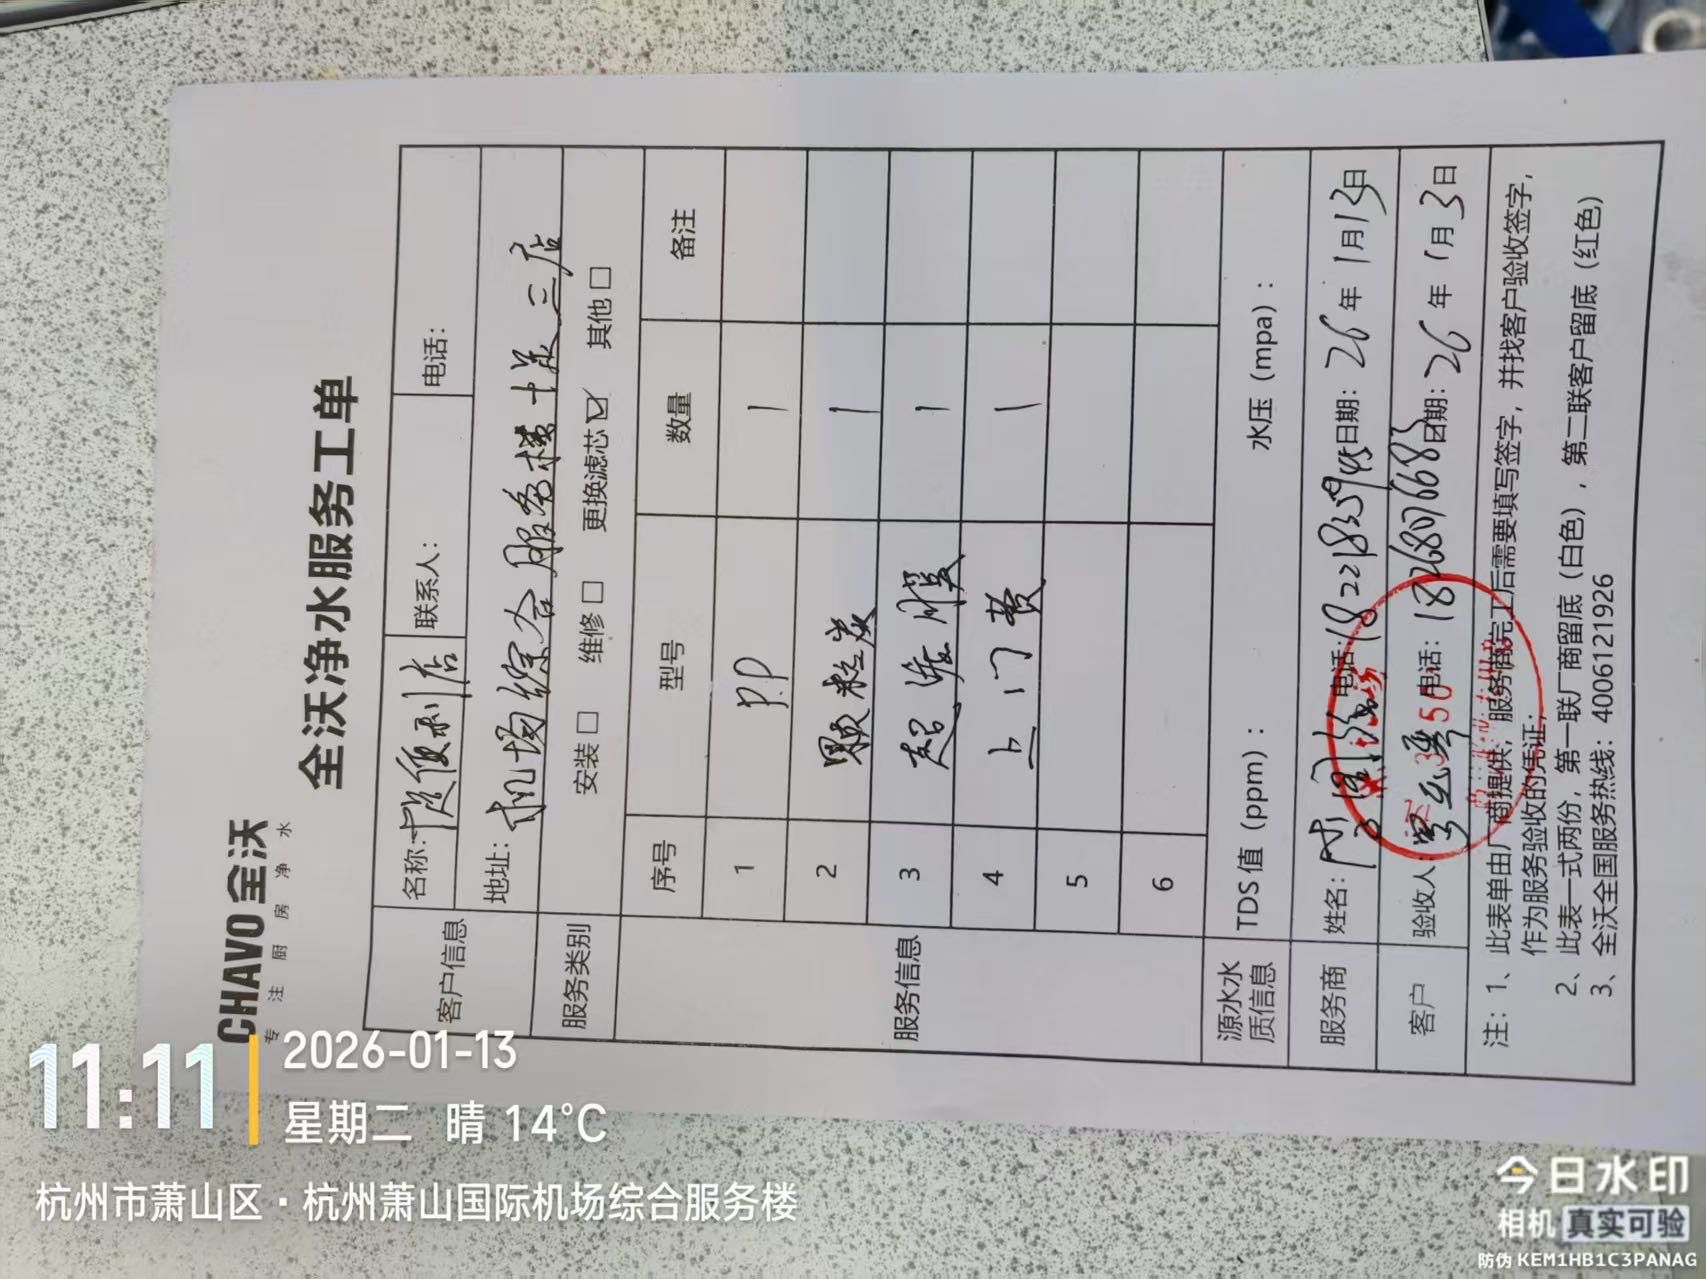 CHAVO 全沃
专 注 厨 房 净 水
全沃净水服务工单
客户信息 名称: 便利店 联系人: 电话:
地址: 机场综合服务楼十足三店
服务类别 安装□ 维修□ 更换滤芯☑ 其他□
服务信息 序号 型号 数量 备注
1 P.P 1
2 颗粒炭 1
3 超滤膜 1
4 上门费 1
5
6
源水水质信息 TDS值(ppm): 水压(mpa):
服务商 姓名: 电话: 日期: 26年1月13日
客户 验收人: 电话: 18268076683 日期: 26年1月3日
注: 1、此表单由厂商提供, 服务商完工后需要填写签字, 并找客户验收签字,
作为服务验收的凭证;
2、此表一式两份, 第一联厂商留底(白色), 第二联客户留底(红色)
3、全沃全国服务热线: 4006121926
11:11
2026-01-13
星期二 晴 14℃
杭州市萧山区·杭州萧山国际机场综合服务楼
今日水印
相机 真实可验
防伪 KEM1HB1C3PANAG